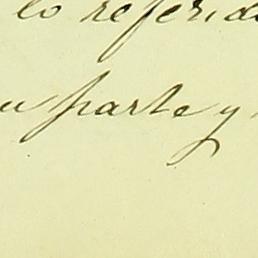 lo referido
u parte y